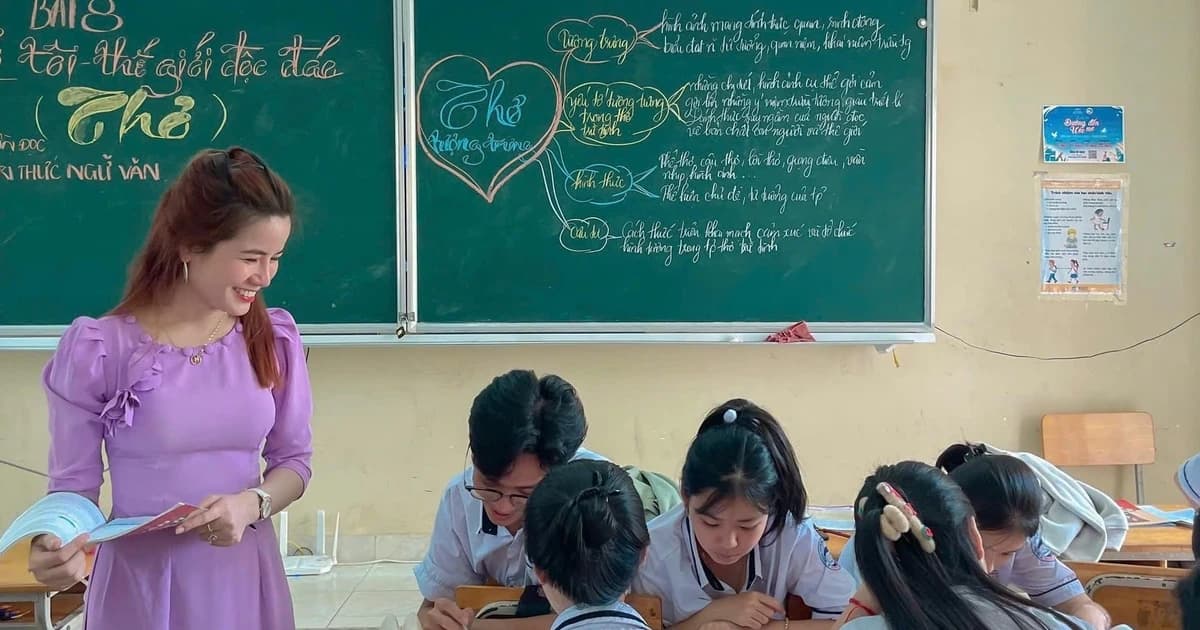 BÀI 8
tôi - thế giới độc đáo
(Thơ)
ĐỌC
TRI THỨC NGỮ VĂN
Thơ
tượng trưng
Tượng trưng
hình ảnh mang tính trực quan, sinh động
biểu đạt tư tưởng, quan niệm, khái niệm
yếu tố tượng trưng
trong thơ
trữ tình
những chi tiết, hình ảnh cụ thể gợi cảm
gợi lên những ý niệm triết lí
đánh thức suy ngẫm của người đọc,
về bản chất con người và thế giới
hình thức
Thể thơ, câu thơ, lời thơ, giọng điệu, vần
nhịp, hình ảnh...
Thể hiện chủ đề, tư tưởng của tp
Cấu tứ
Cách thức triển khai mạch cảm xúc và tổ chức
hình tượng trong tp thơ trữ tình
Đường đến